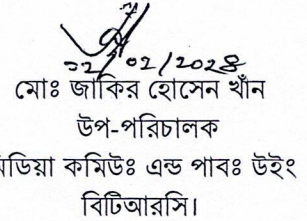 ২১/০১/২০২৪
মোঃ জাকির হোসেন খাঁন
উপ-পরিচালক
মিডিয়া কমিউঃ এন্ড পাবঃ উইং
বিটিআরসি।